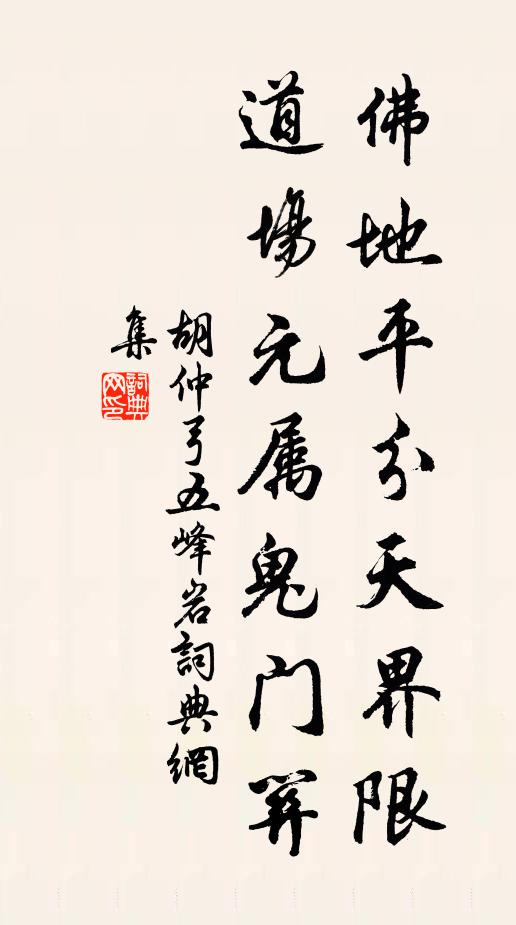 佛地平分天界限
道場元属鬼门
胡仲弓五峰岩詞典網
集
詞典
网印